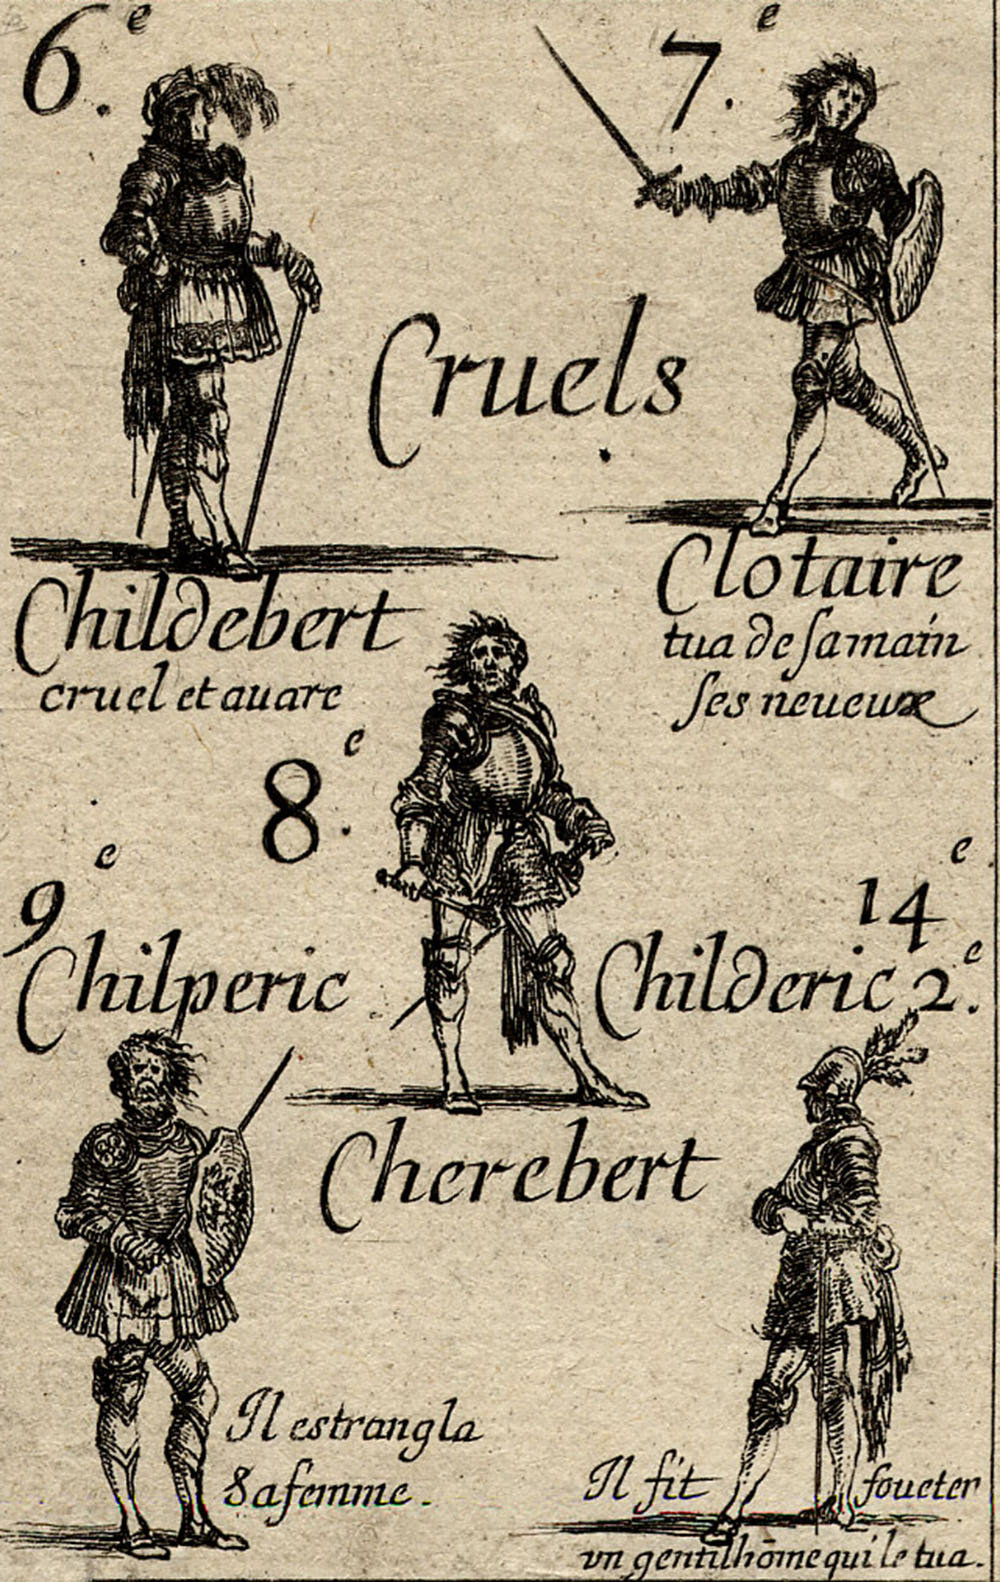 6.e
7.e
Cruels
Childebert
cruel et auare
Clotaire
tua de sa main
ses neueux
8.e
9e
Chilperic
14e
Childeric 2.e
Cherebert
Il estrangla
sa femme.
Il fit foueter
vn gentilhōme qui le tua.